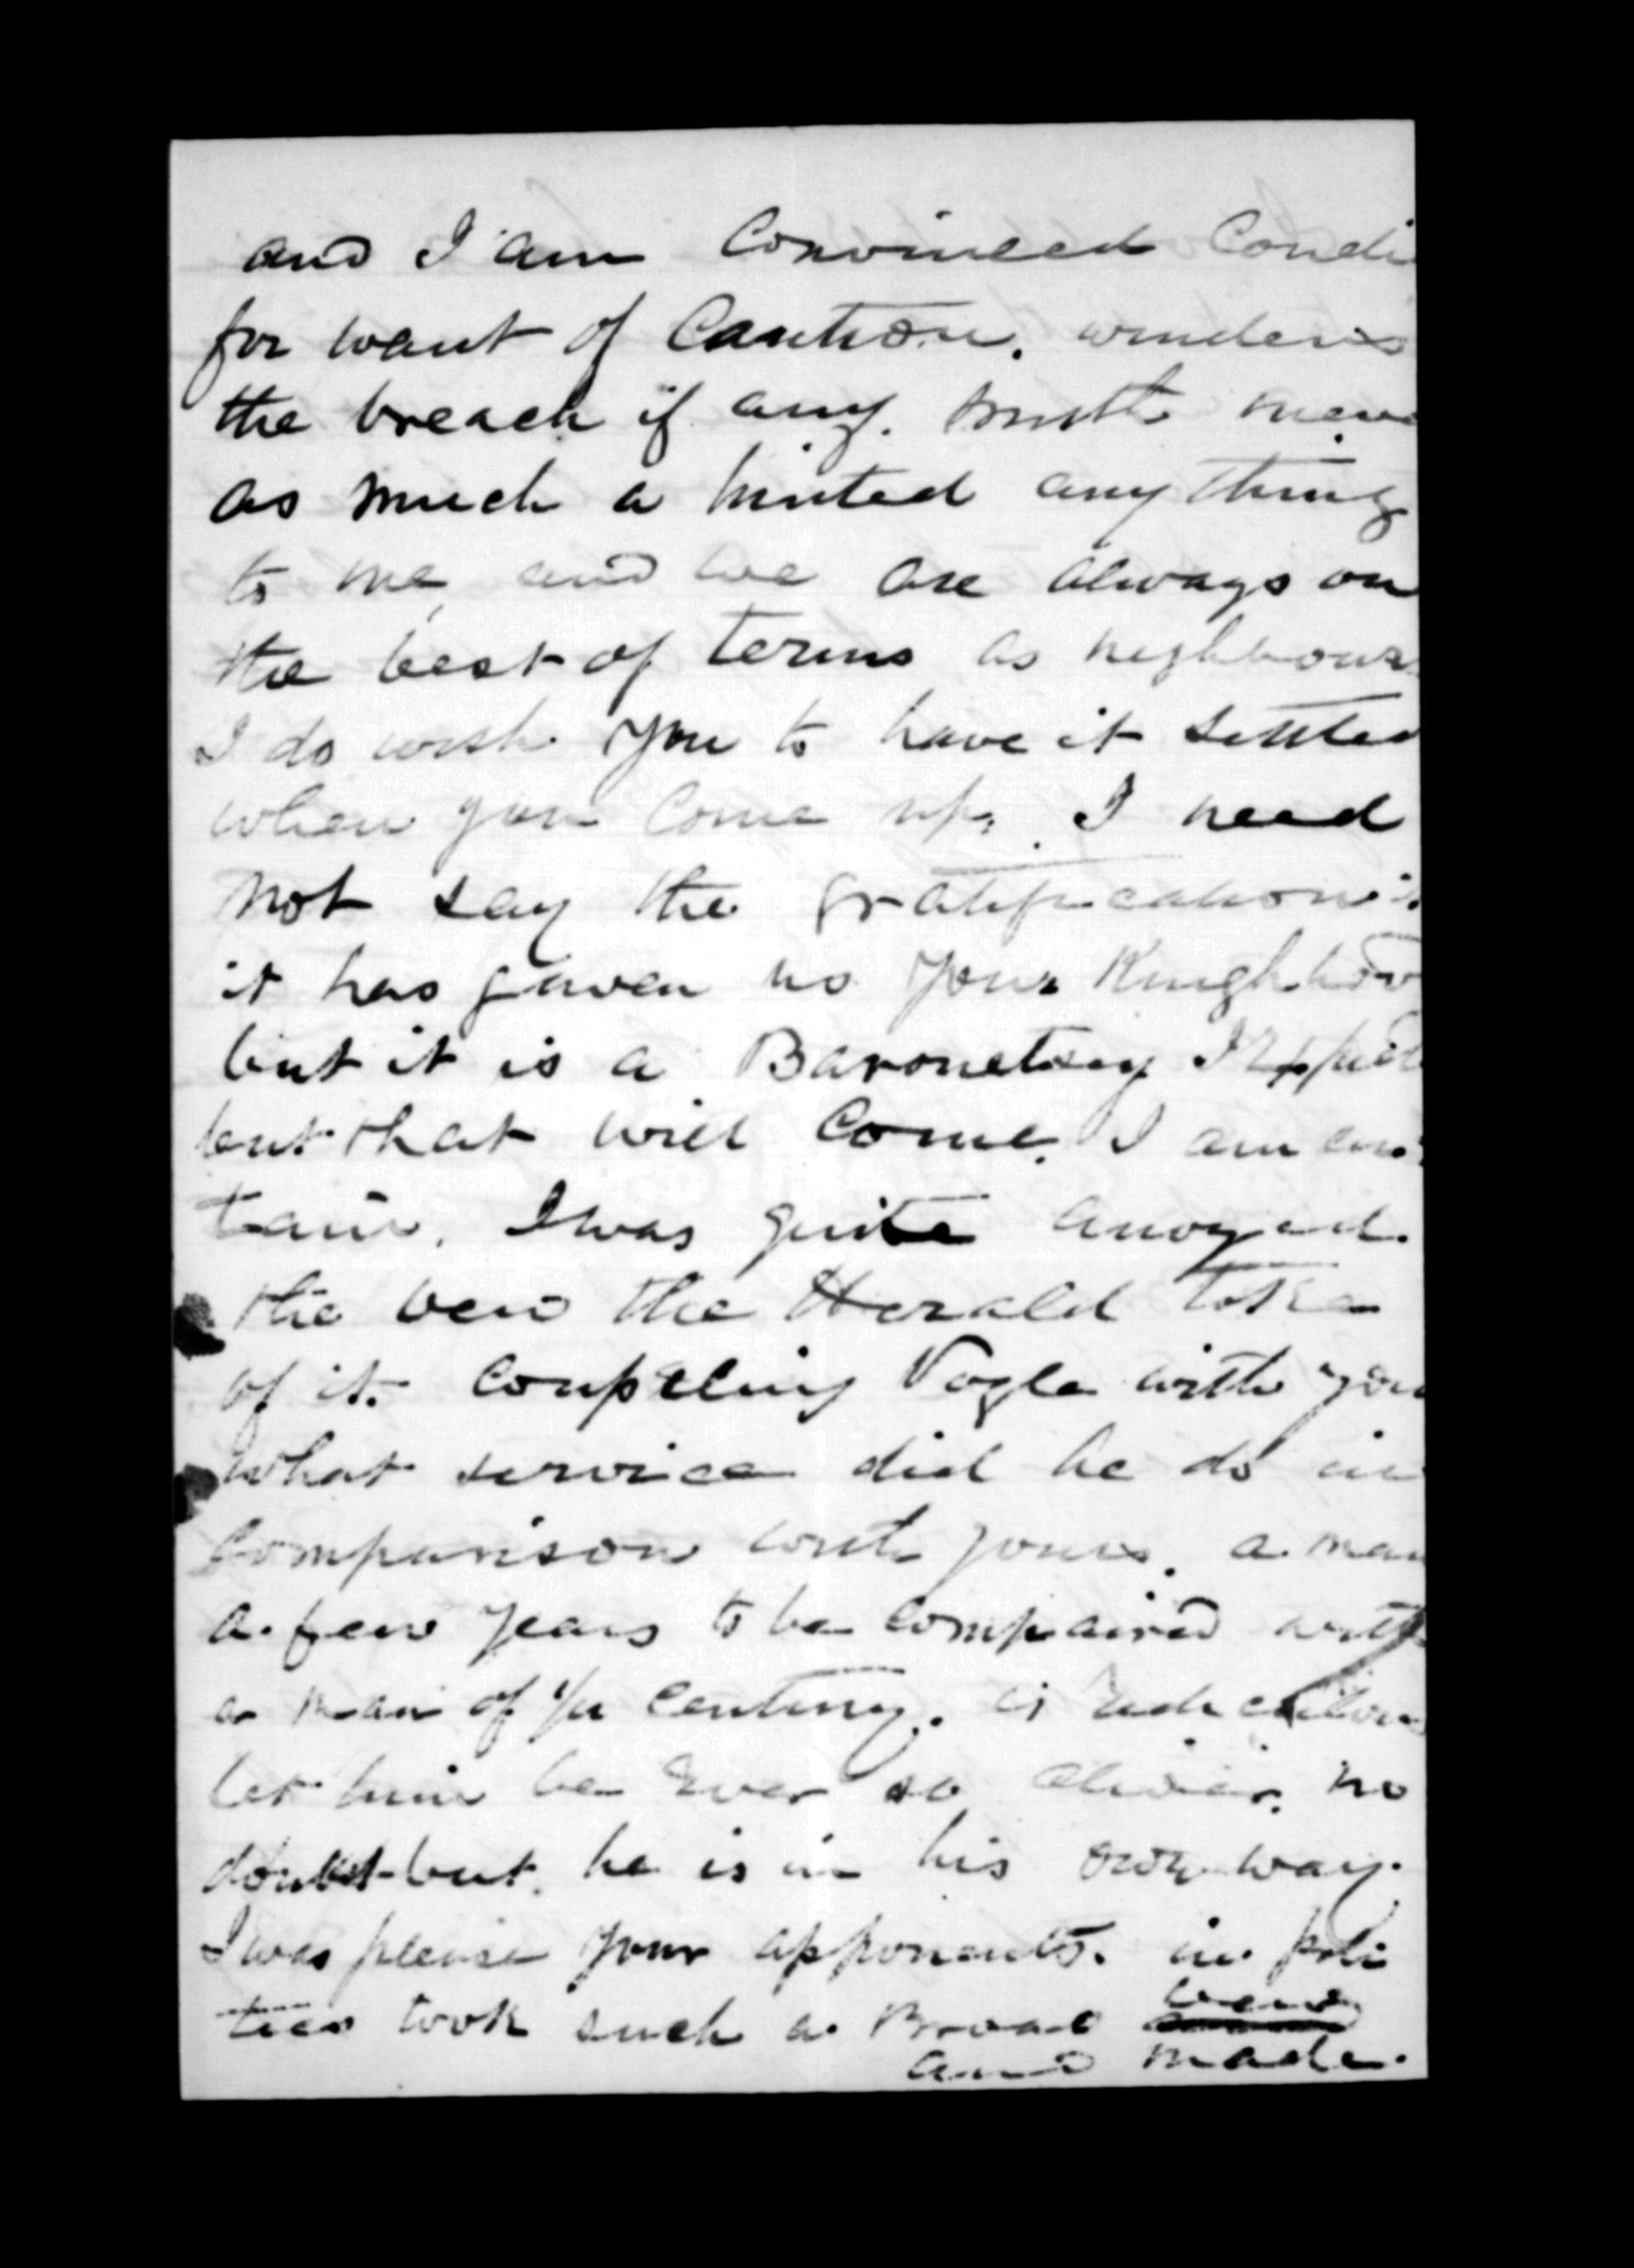 and I am Convinced Condi
for want of Caution. winders
the breach if any. Smith
as much a hinted any thing
to me, and we are always on
the best of terms as neighbours
I do wish you to have it settled
when you Come up. I need
not say the gratification
it has gaven us your Knighthood
but it is a Baronetsey I
but that will Come. I am
tain. I was quite anoyed.
the veiw the Herald toke
of it. Coupeling Vogle with you
what service did he do in
Comparison with yours. a man
a few years to be Compaired with
a man of 1/4 Century. is
let him be Ever so no
doubt but he is in his own way.
I was please your apponents. in poli
tics took such a Broad veiw
and made.